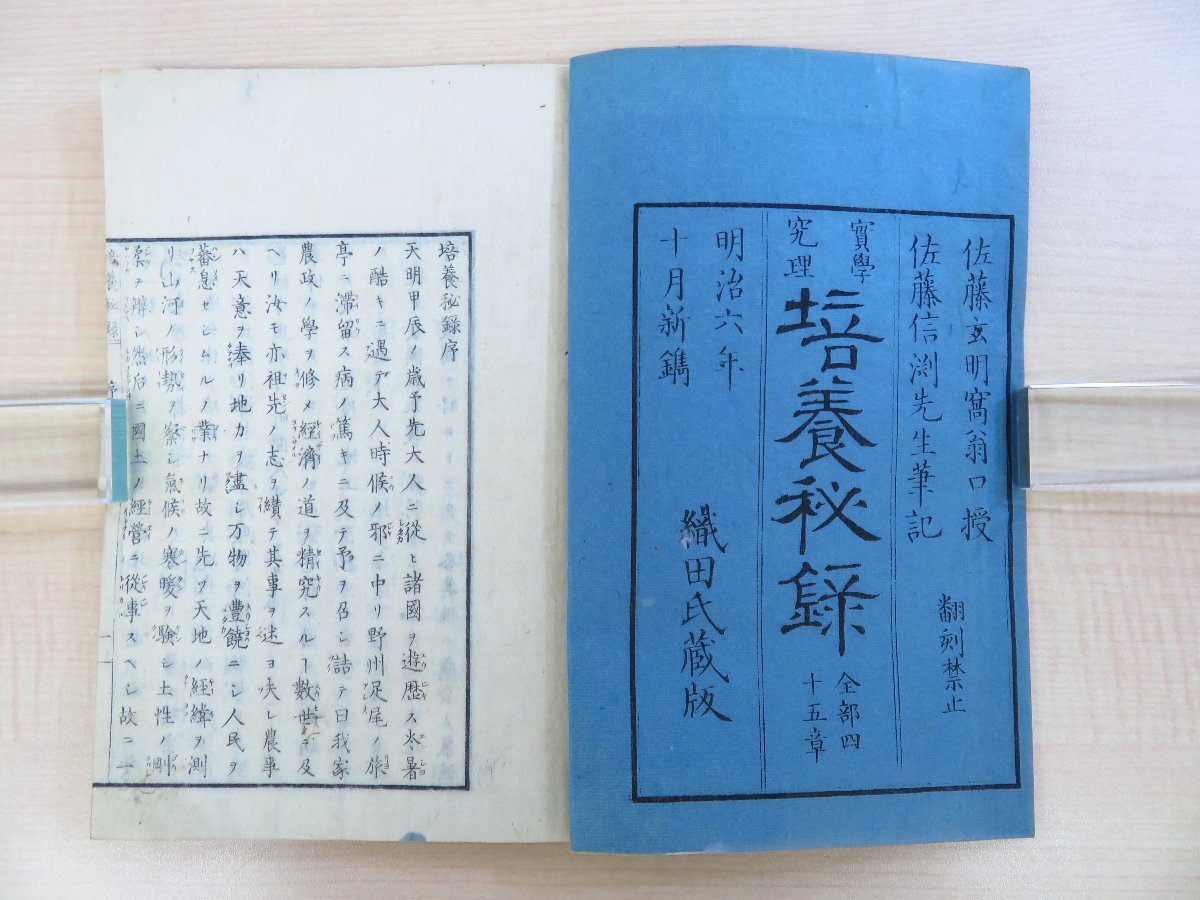 佐藤玄明窩翁口授
佐藤信渕先生筆記
翻刻禁止
實學
究理
培養秘録
全部四
十五章
明治六年
十月新鐫
織田氏蔵版
培養秘録序
天明甲辰ノ歳予先大人ニ從ヒ諸國ヲ遊歴ス炎暑
ノ酷キニ遇テ大人時候ノ邪ニ中リ野州足尾ノ旅
亭ニ滞留ス病ノ篤キニ及テ予ヲ召シ詰テ曰我家
農政ノ學ヲ修メ經濟ノ道ヲ精究スルー數世ヲ及
ヘリ汝モ亦祖先ノ志ヲ纉テ其事ヲ述ヨ夫レ農事
ハ天意ヲ奉リ地力ヲ盡シ万物ヲ豊饒ニシ人民ヲ
蕃息セシムルノ業ナリ故ニ先ツ天地ノ經緯ヲ測
リ山河ノ形勢ヲ察シ氣候ノ寒暖ヲ験シ土性ノ剛
柔ヲ辨シ然后ニ國土ノ經營ニ從事スヘシ故ニ
培養秘録
序
一